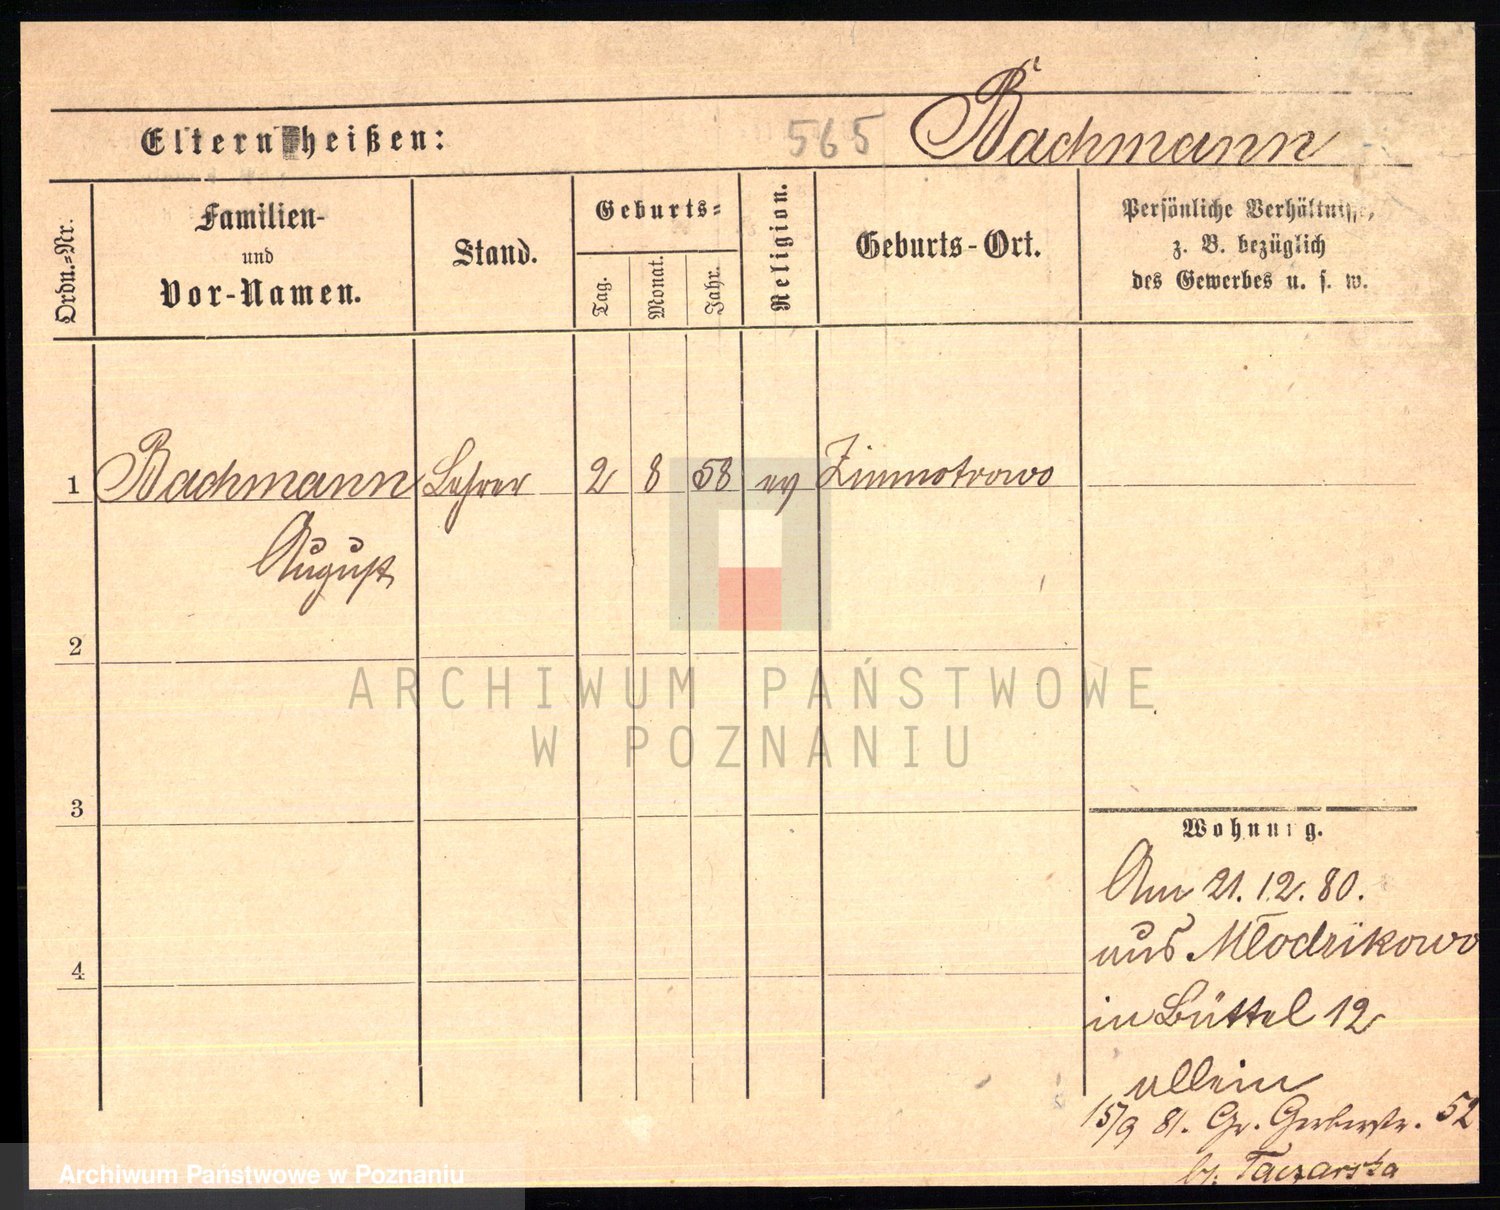 Eltern heißen:
565
Bachmann
Ordn.-Nr.
Familien-
und
Vor-Namen.
Stand.
Geburts-
Tag.
Monat.
Jahr.
Religion.
Geburts-Ort.
Persönliche Verhältnisse,
z. B. bezüglich
des Gewerbes u. s. w.
1 Bachmann Lehrer 2 8 58 ev Zimnotrowo
August
2
3
4
Wohnung.
Am 21.12.80.
aus Młodzikowo
in Büttel 12
allein
15/9 81. Gr. Gerberstr. 52
b. Taczarska
ARCHIWUM PAŃSTWOWE
W POZNANIU
Archiwum Państwowe w Poznaniu